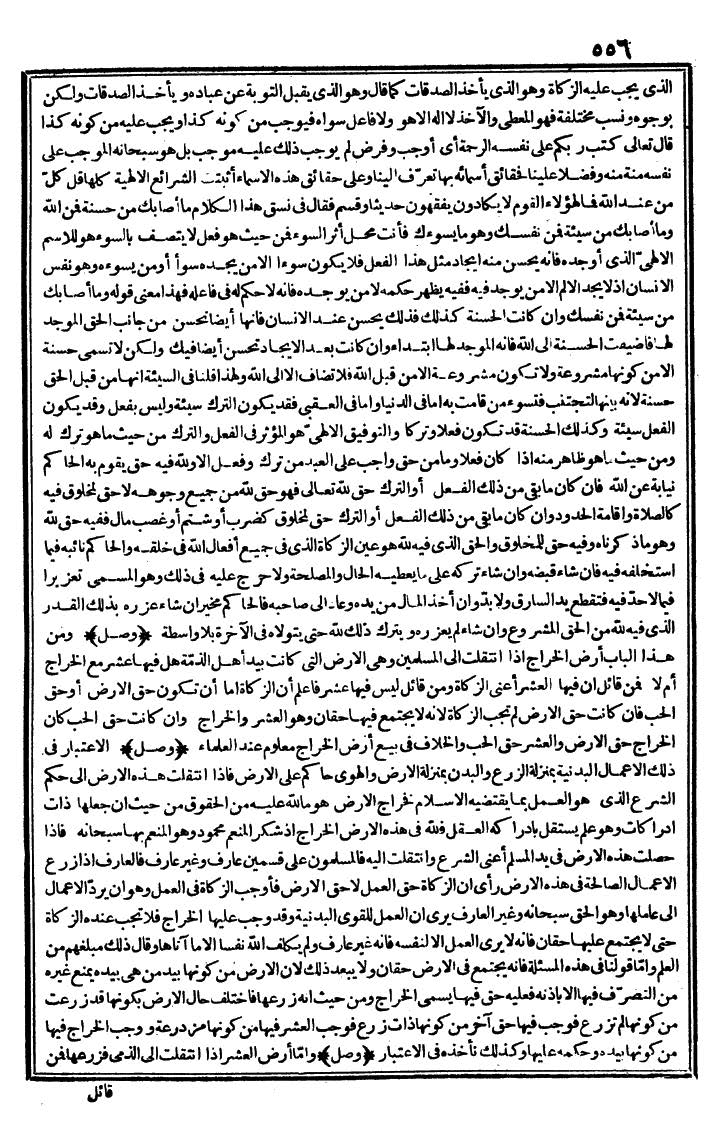 ٥٥٦
الذى يجب عليه الزكاة وهو الذى يأخذ الصدقات كما قال وهو الذى يقبل التوبة عن عباده ويأخذ الصدقات ولكن
بوجوه ونسب مختلفة فهو المعطى والآخذ لا اله الا هو ولا فاعل سواه فيوجب من كونه كذا ويجب عليه من كونه كذا
قال تعالى كتب ربكم على نفسه الرحمة أى أوجب وفرض لم يوجب ذلك عليه موجب بل هو سبحانه الموجب على
نفسه منة منه وفضلا علينا فحقائق أسمائه بها تعرّف الينا وعلى حقائق هذه الاسماء أثبتت الشرائع الالهية كلها قل كلّ
من عند الله فما لهؤلاء القوم لا يكادون يفقهون حديثا وقسم فقال فى نسق هذا الكلام ما أصابك من حسنة فمن الله
وما أصابك من سيئة فمن نفسك وهو ما يسوءك فأنت محل أثر السوء فمن حيث هو فعل لا يتصف بالسوء هو للاسم
الالهىّ الذى أوجده فانه يحسن منه ايجاد مثل هذا الفعل فلا يكون سوءا الا من يجده سوأ أو من يسوءه وهو نفس
الانسان اذ لا يجد الالم الا من يوجد فيه ففيه يظهر حكمه لا من يوجده فانه لا حكم له فى فاعله فهذا معنى قوله وما أصابك
من سيئة فمن نفسك وان كانت الحسنة كذلك فذلك يحسن عند الانسان فانها أيضا تحسن من جانب الحق الموجد
لها فاضيفت الحسنة الى الله فانه الموجد لها ابتداء وان كانت بعد الايجاد تحسن أيضا فيك ولكن لا تسمى حسنة
الا من كونها مشروعة ولا تكون مشروعة الا من قبل الله فلا تضاف الا الى الله ولهذا قلنا فى السيئة انها من قبل الحق
حسنة لانه بينها لتجتنب فتسوء من قامت به اما فى الدنيا واما فى العقبى فقد يكون الترك سيئة وليس بفعل وقد يكون
الفعل سيئة وكذلك الحسنة قد تكون فعلا وتركا والتوفيق الالهىّ هو المؤثر فى الفعل والترك من حيث ما هو ترك له
ومن حيث ما هو ظاهر منه اذا كان فعلا وما من حق واجب على العبد من ترك وفعل الا ولله فيه حق يقوم به الحاكم
نيابة عن الله فان كان ما بقى من ذلك الفعل أو الترك حق لله تعالى فهو حق لله من جميع وجوهه لا حق لمخلوق فيه
كالصلاة واقامة الحدود وان كان ما بقى من ذلك الفعل أو الترك حق لمخلوق كضرب أو شتم أو غصب مال ففيه حق لله
وهو ما ذكرناه وفيه حق للمخلوق والحق الذى فيه لله هو عين الزكاة الذى فى جميع أفعال الله فى خلقه والحاكم نائبه فيما
استخلفه فيه فان شاء قبضه وان شاء تركه على ما يعطيه الحال والمصلحة ولا حرج عليه فى ذلك وهو المسمى تعزيرا
فيما لا حد فيه فتقطع يد السارق ولا بدّ وان أخذ المال من يده وعاد الى صاحبه فالحاكم مخير ان شاء عزره بذلك القدر
الذى فيه لله من الحق المشروع وان شاء لم يعزره ويترك ذلك لله حتى يتولاه فى الآخرة بلا واسطة ﴿وصل﴾ ومن
هذا الباب أرض الخراج اذا انتقلت الى المسلمين وهى الارض التى كانت بيد أهل الذمّة هل فيها عشر مع الخراج
أم لا فمن قائل ان فيها العشر أعنى الزكاة ومن قائل ليس فيها عشر فاعلم أن الزكاة اما أن تكون حق الارض أو حق
الحب فان كانت حق الارض لم تجب الزكاة لانه لا يجتمع فيها حقان وهو العشر والخراج وان كانت حق الحب كان
الخراج حق الارض والعشر حق الحب والخلاف فى بيع أرض الخراج معلوم عند العلماء ﴿وصل﴾ الاعتبار فى
ذلك الاعمال البدنية بمنزلة الزرع والبدن بمنزلة الارض والهوى حاكم على الارض فاذا انتقلت هذه الارض الى حكم
الشرع الذى هو العمل بما يقتضيه الاسلام فخراج الارض هو ما لله عليه من الحقوق من حيث ان جعلها ذات
ادراكات وهو علم يستقل بادراكه العقل فلله فى هذه الارض الخراج اذ شكر المنعم محمود وهو المنعم بها سبحانه فاذا
حصلت هذه الارض فى يد المسلم أعنى الشرع وانتقلت اليه فالمسلمون على قسمين عارف وغير عارف فالعارف اذا زرع
الاعمال الصالحة فى هذه الارض رأى ان الزكاة حق العمل لا حق الارض فأوجب الزكاة فى العمل وهو ان يردّ الاعمال
الى عاملها وهو الحق سبحانه وغير العارف يرى ان العمل للقوى البدنية وقد وجب عليها الخراج فلا تجب عنده الزكاة
حتى لا يجتمع عليها حقان فانه لا يرى العمل الا لنفسه فانه غير عارف ولم يكلف الله نفسا الا ما آتاها وقال ذلك مبلغهم من
العلم وامّا قولنا فى هذه المسئلة فانه يجتمع فى الارض حقان ولا يبعد ذلك لان الارض من كونها بيد من هى بيده يمنع غيره
من التصرّف فيها الا باذنه فعليه حق فيها يسمى الخراج ومن حيث انه زرعها فاختلف حال الارض بكونها قد زرعت
من كونها لم تزرع فوجب فيها حق آخر من كونها ذات زرع فوجب العشر فيها من كونها مزدرعة ووجب الخراج فيها
من كونها بيده وحكمه عليها وكذلك نأخذه فى الاعتبار ﴿وصل﴾ وامّا أرض العشر اذا انتقلت الى الذمى فزرعها فمن
قائل